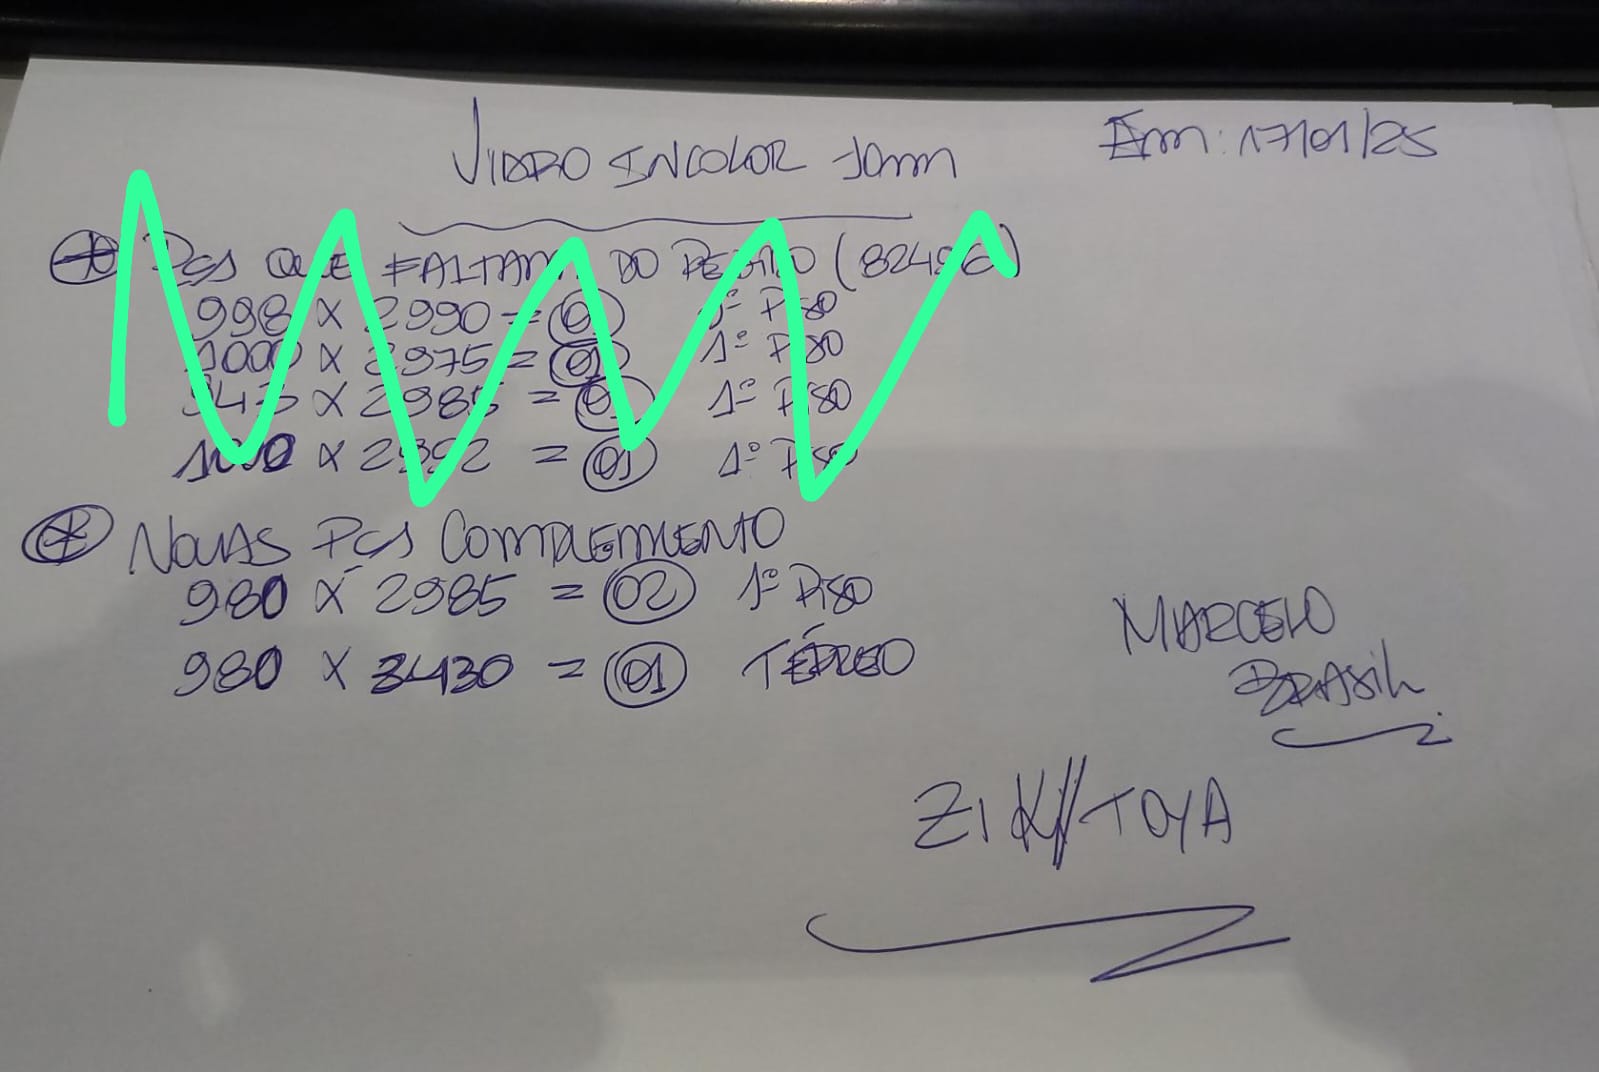 VIDRO INCOLOR 10mm
Em: 17/01/25
PCS QUE FALTAM DO PEDIDO (82496)
998 X 2990 = 01 1º PISO
1000 X 2975 = 01 1º PISO
943 X 2985 = 01 1º PISO
1000 X 2992 = 01 1º PISO
NOVAS PCS COMPLEMENTO
980 X 2985 = 02 1º PISO
980 X 3430 = 01 TÉRREO
MARCELO
BRASIL
ZIK//TOYA